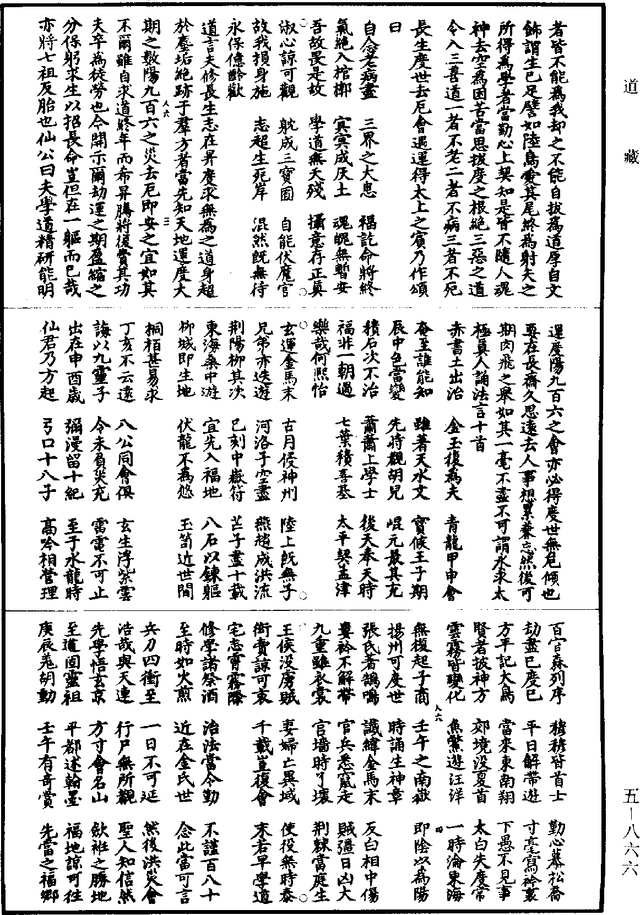 道藏
者皆不能為我却之不能自拔為道厚自文
飾謂生已足譬如陸鳥愛其尾終為射夫之
所得為學者當勤心上契知是皆不隨人魂
神去空為困苦當思拔度之根絕三惡之道
令入三善道一者不老二者不病三者不死
長生度世去厄會遇運得太上之賓乃作頌
曰
自念老病盡 三界之大患 福訖命將終
氣絕入棺槨 冥冥成灰土 魂魄無暫安
吾故畏是故 學道無夭殘 攝意存正真
淑心諒可觀 躭成三寶固 自能伏魔官
故我損身施 志超生死岸 混然既無待
永保億齡歡
道言夫修長生志在昇度求無為之道身超
於塵垢絕跡于羣方者當先知天地運度大
期之數陽九百六之災去厄即安之宜如其
不爾雖自求道終年而希昇騰將後賞其功
夫卒為徒勞也今開示爾劫運之期盈縮之
分保躬求生以招長命豈但在一軀而已哉
亦將七祖反胎也仙公曰夫學道精研能明
運度陽九百六之會亦必得度世無危傾也
要在長齋久思遠去人事想累兼忘然後可
期肉飛之舉如其一毫不盡不可謂永求太
極真人誦法言十首
赤書土出治 金玉復為夫 青龍甲申會
奄至誰能知 雖著天水文 寶候王子期
辰中色當變 先時觀胡兒 崐元最其充
積石次不治 蕭蕭上學士 後天奉天時
福非一朝過 七葉積善基 太平契孟津
樂哉何熙怡
玄運金馬末 古月侵神州 陸上既無子
兄弟亦迭遊 河洛子空盡 燕趙成洪流
荆陽柳其次 已刻中嶽符 芒子盡十載
東海桑中游 宜先入福地 八石以鍊軀
柳城即生地 伏龍不為愆 玉笥近世間
桐栢甚易求
丁亥不云遠 八公同會俱 玄生浮紫雲
誨以九靈子 令未負災充 雷電不可止
出在申酉歲 彌漫留十紀 至于水龍時
仙君乃方起 弓口十八子 高吟相營理
百官森列序 穆穆皆首士 勤心慕松喬
劫盡已度已 平日解帶遊 寸毫寫衿裏
方平記大鳥 當來東南翔 下愚不見事
賢者披神方 郊境没夏首 太白失度常
雲霧皆變化 魚鱉遊汪洋 一時淪東海
無復起子商 壬午之南嶽 即陰以為陽
揚州可度世 時誦生神章
張氏者鵠鳴 讖緯金馬末 反白相中傷
婁衿不解帶 官兵悉竄走 賊彊日凶大
九重雖衣裳 官墙時丫壞 荆棘當庭生
王侯没虜賊 妻婦亡異域 使役無時泰
衒賣諒可哀 千載豈復會 末若早學道
宅志霄霧際
修學諾祭酒 治法當令勤 不謹百八十
至時如火煎 近在金氏世 念此當可言
兵刀四衝至 一日不可延 然後洪災會
浩哉與天連 行尸無所觀 聖人知信然
先學悟玄京 方寸會名山 歘袵之勝地
至道固靈祖 平都述翰墨 福地諒可往
庚辰羗胡動 壬午有奇賞 先當之福鄉
五—八六六